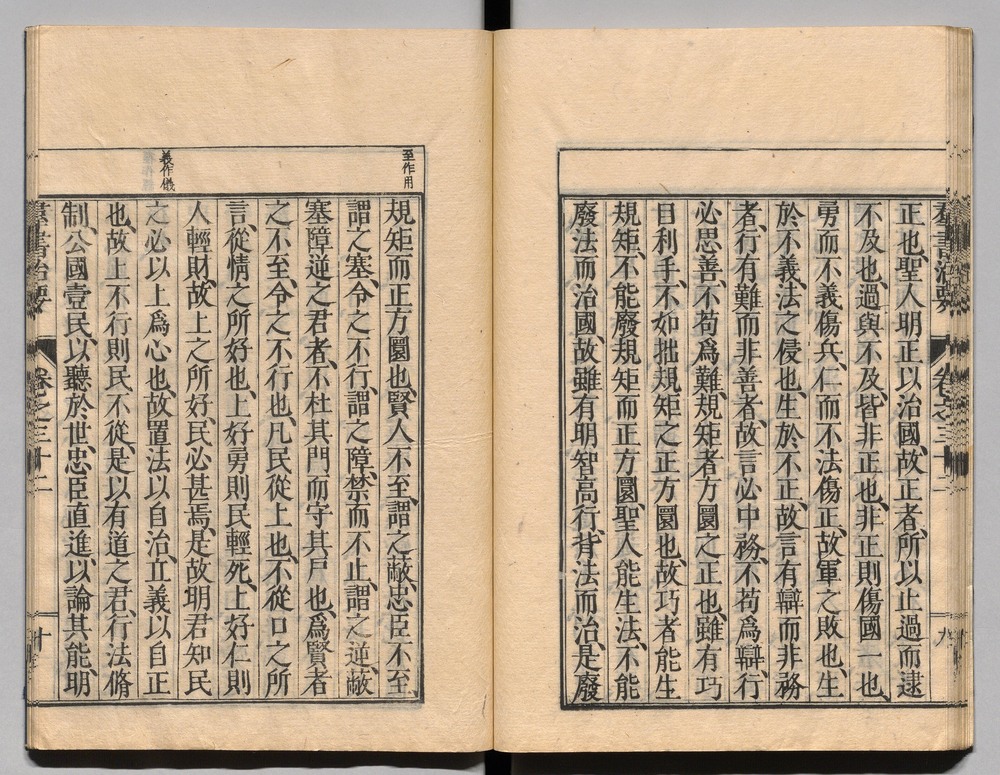 羣書治要 卷之三十二 九
正也、聖人明正以治國、故正者、所以止過而逮
不及也、過與不及、皆非正也、非正則傷國一也、
勇而不義傷兵、仁而不法傷正、故軍之敗也、生
於不義、法之侵也、生於不正、故言有辯而非務
者、行有難而非善者、故言必中務、不苟爲辯、行
必思善、不苟爲難、規矩者方圜之正也、雖有巧
目利手、不如拙規矩之正方圜也、故巧者能生
規矩、不能廢規矩而正方圜、聖人能生法、不能
廢法而治國、故雖有明智高行、背法而治、是廢
至作用
義作儀
規矩而正方圜也、賢人不至、謂之蔽、忠臣不至、
謂之塞、令之不行、謂之障、禁而不止、謂之逆、蔽
塞障逆之君者、不杜其門而守其戸也、爲賢者
之不至、令之不行也、凡民從上也、不從口之所
言、從情之所好也、上好勇則民輕死、上好仁則
人輕財、故上之所好、民必甚焉、是故明君知民
之必以上爲心也、故置法以自治、立義以自正
也、故上不行則民不從、是以有道之君、行法脩
制、公國壹民、以聽於世、忠臣直進、以論其能、明
羣書治要 卷之三十二 十